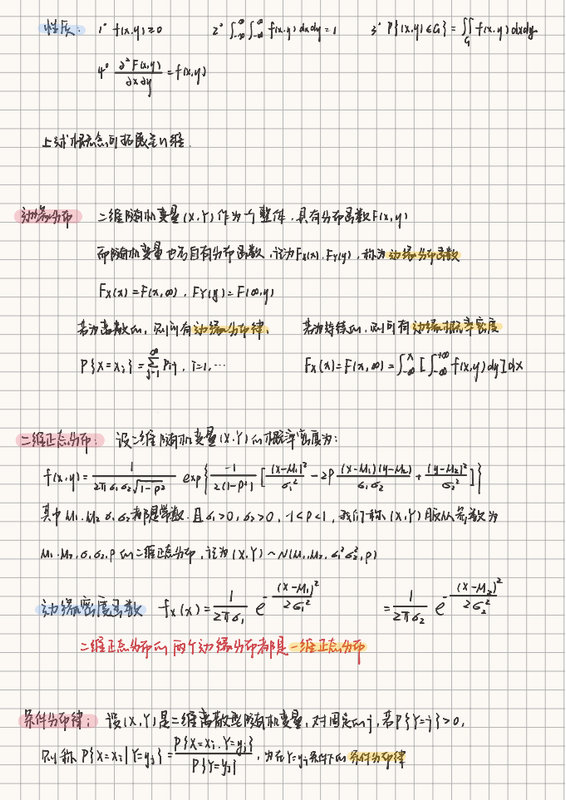 性质: 1° f(x,y)≥0 2° ∫_{-∞}^{∞}∫_{-∞}^{∞} f(x,y)dxdy=1 3° P{(x,y)∈G}=∬_G f(x,y)dxdy
4° ∂²F(x,y)/∂x∂y = f(x,y)
上述概念可拓展至n维.
边缘分布 二维随机变量(X,Y)作为一个整体,具有分布函数F(x,y)
而随机变量也各自有分布函数,记为Fx(x).FY(y),称为边缘分布函数
Fx(x)=F(x,∞),FY(y)=F(∞,y)
若为离散的,则可有边缘分布律, 若为持续的,则可有边缘概率密度
P{X=xi}=∑_{j=1}^{∞} Pij, i=1,… Fx(x)=F(x,∞)=∫_{-∞}^{x}[∫_{-∞}^{+∞} f(x,y)dy]dx
二维正态分布: 设二维随机变量(X,Y)的概率密度为:
f(x,y)=1/(2πσ1σ2√(1-ρ²)) exp{-1/(2(1-ρ²))[(x-μ1)²/σ1²-2ρ(x-μ1)(y-μ2)/σ1σ2+(y-μ2)²/σ2²]}
其中μ1.μ2 σ1 σ2都是常数.且σ1>0,σ2>0,-1<ρ<1,我们称(X,Y)服从参数为
μ1.μ2,σ1,σ2,ρ的二维正态分布,记为(X,Y)~N(μ1,μ2,σ1²,σ2²,ρ)
边缘密度函数 fx(x)=1/(2πσ1) e^{-(x-μ1)²/2σ1²} =1/(2πσ2) e^{-(x-μ2)²/2σ2²}
二维正态分布的两个边缘分布都是一维正态分布
条件分布律: 设(X,Y)是二维离散型随机变量,对固定的j,若P{Y=j}>0,
则称P{X=xi|Y=yj}=P{X=xi,Y=yj}/P{Y=yj},为在Y=yj条件下的条件分布律